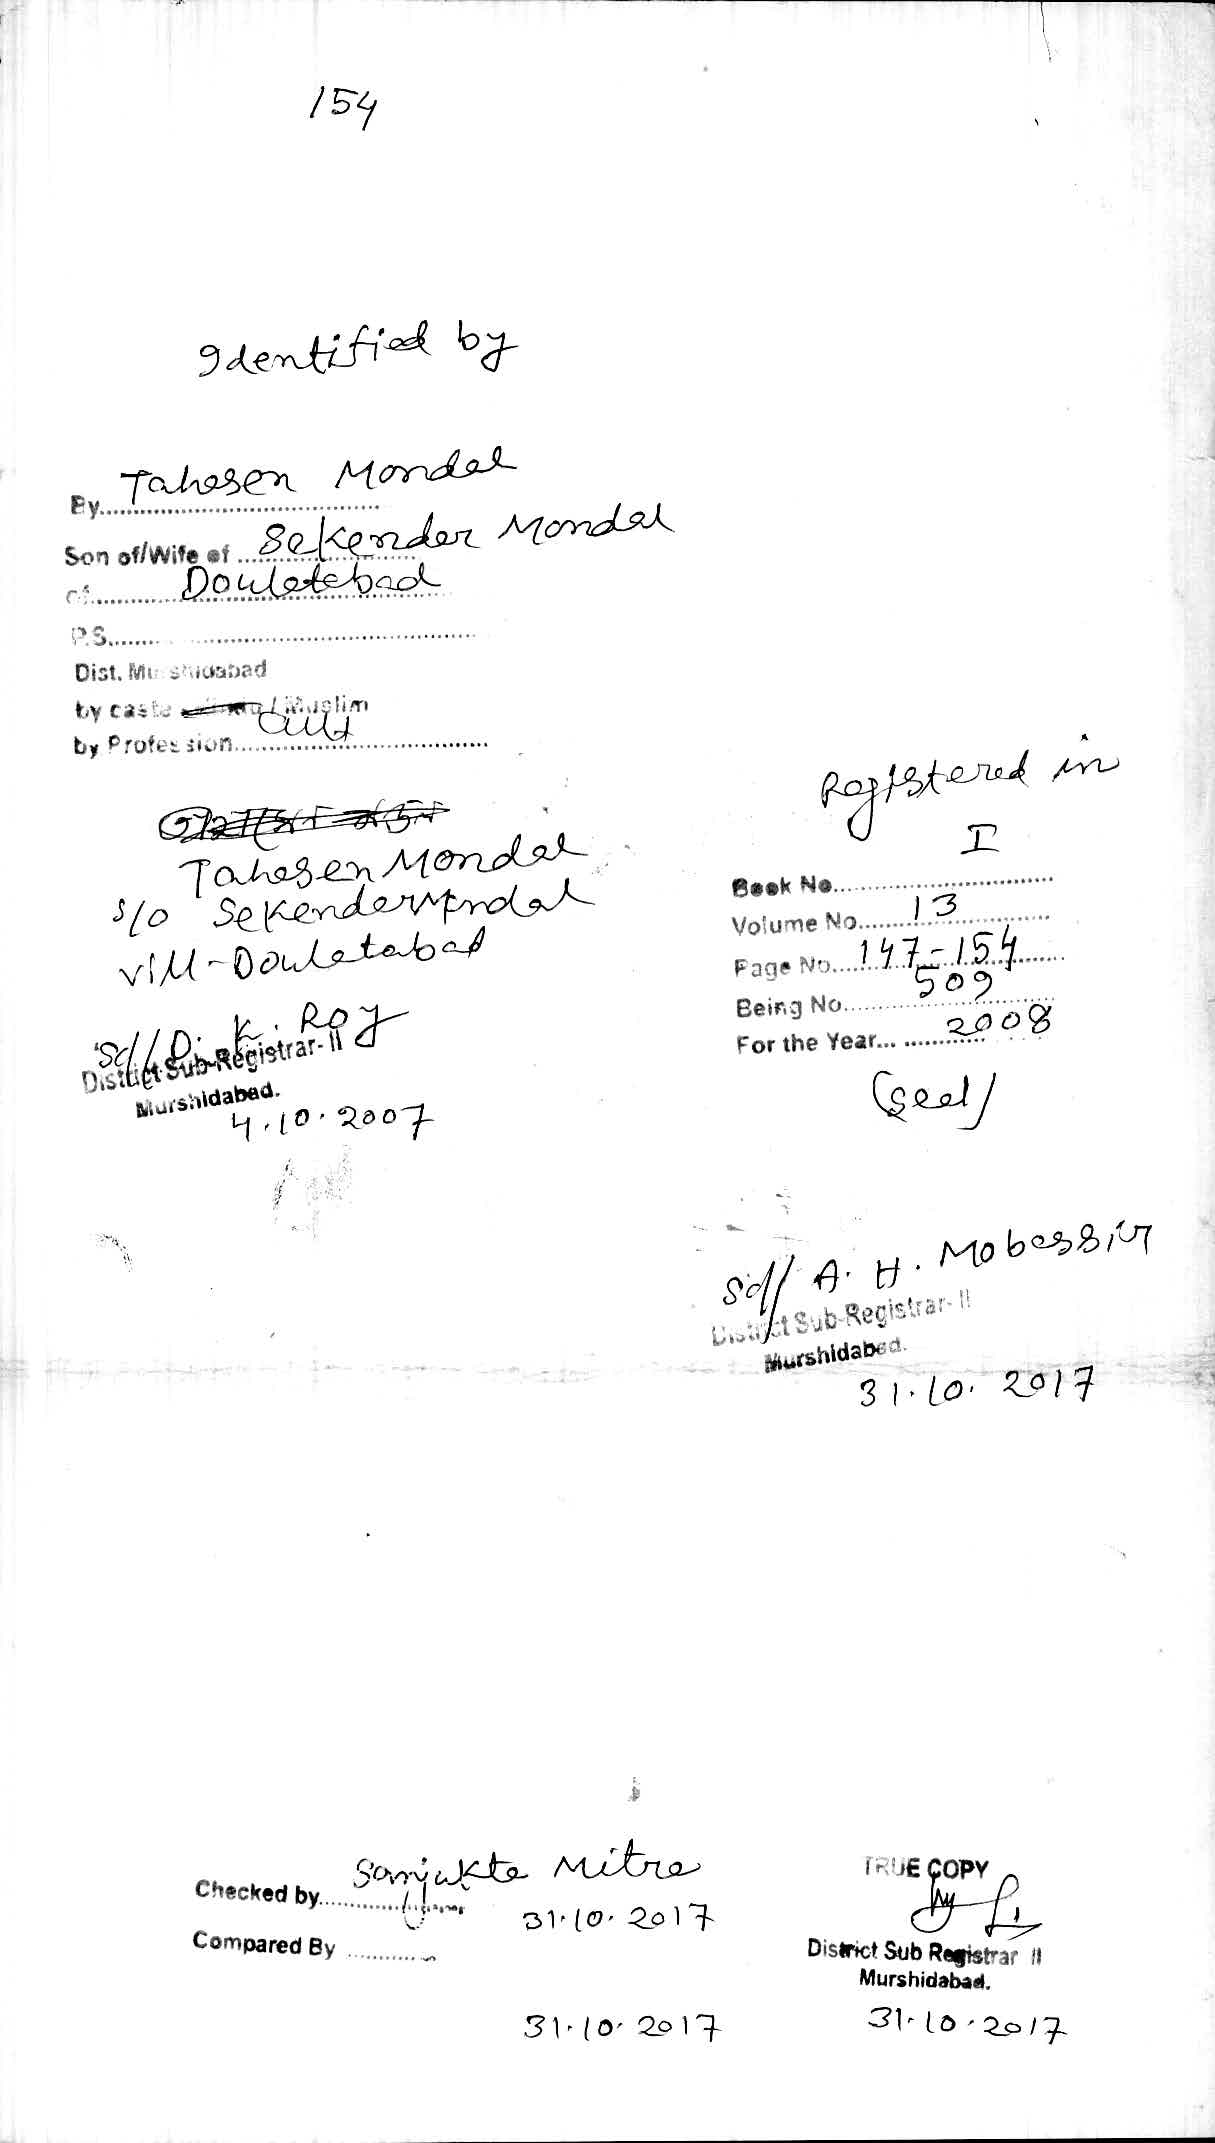 154
Identified by
By Tahasen Mondal
Son of/Wife of Sekender Mondal
of Doulatabad
P.S.
Dist. Murshidabad
by caste / Muslim
by Profession Cult
Tahasen Mondal
S/o Sekender Mondal
Vill - Doulatabad
Sd/ D. K. Roy
District Sub-Registrar- II
Murshidabad.
4.10.2007
Registered in
Book No. I
Volume No. 13
Page No. 147-154
Being No. 509
For the Year 2008
(Seal)
Sd/ A. H. Mobassir
District Sub-Registrar- II
Murshidabad.
31.10.2017
Checked by Sanjukta Mitra
31.10.2017
Compared By
31.10.2017
TRUE COPY
District Sub Registrar II
Murshidabad.
31.10.2017